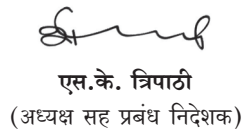 एस.के. त्रिपाठी
(अध्यक्ष सह प्रबंध निदेशक)